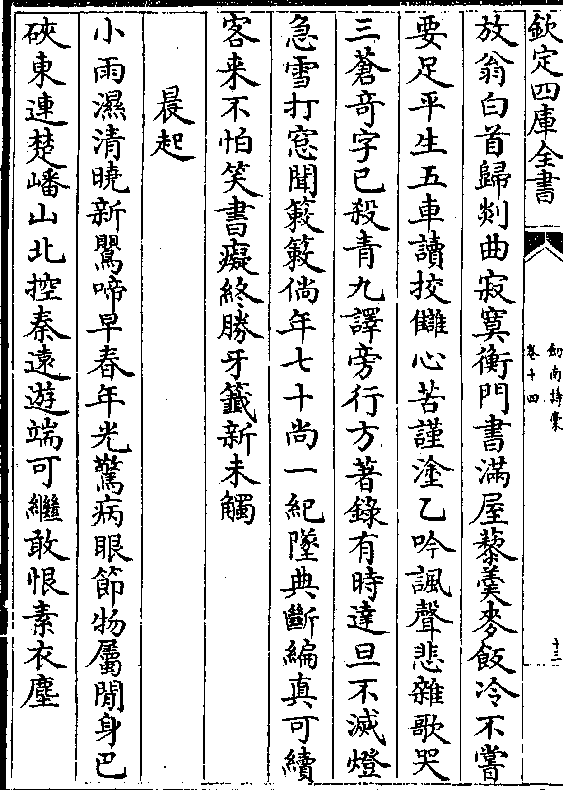 欽定四庫全書
劍南詩稾
卷十四
十三
放翁白首歸剡曲寂寞衡門書滿屋藜羮麥飯冷不嘗
要足平生五車讀挍讎心苦謹塗乙吟諷聲悲雜歌哭
三蒼奇字已殺青九譯旁行方著錄有時達旦不滅燈
急雪打窓聞簌簌倘年七十尚一紀墜典斷編真可續
客来不怕笑書癡終勝牙籤新未觸
晨起
小雨濕清曉新鸎啼早春年光驚病眼節物屬閒身巴
硤東連楚嶓山北控秦遠遊端可繼敢恨素衣塵